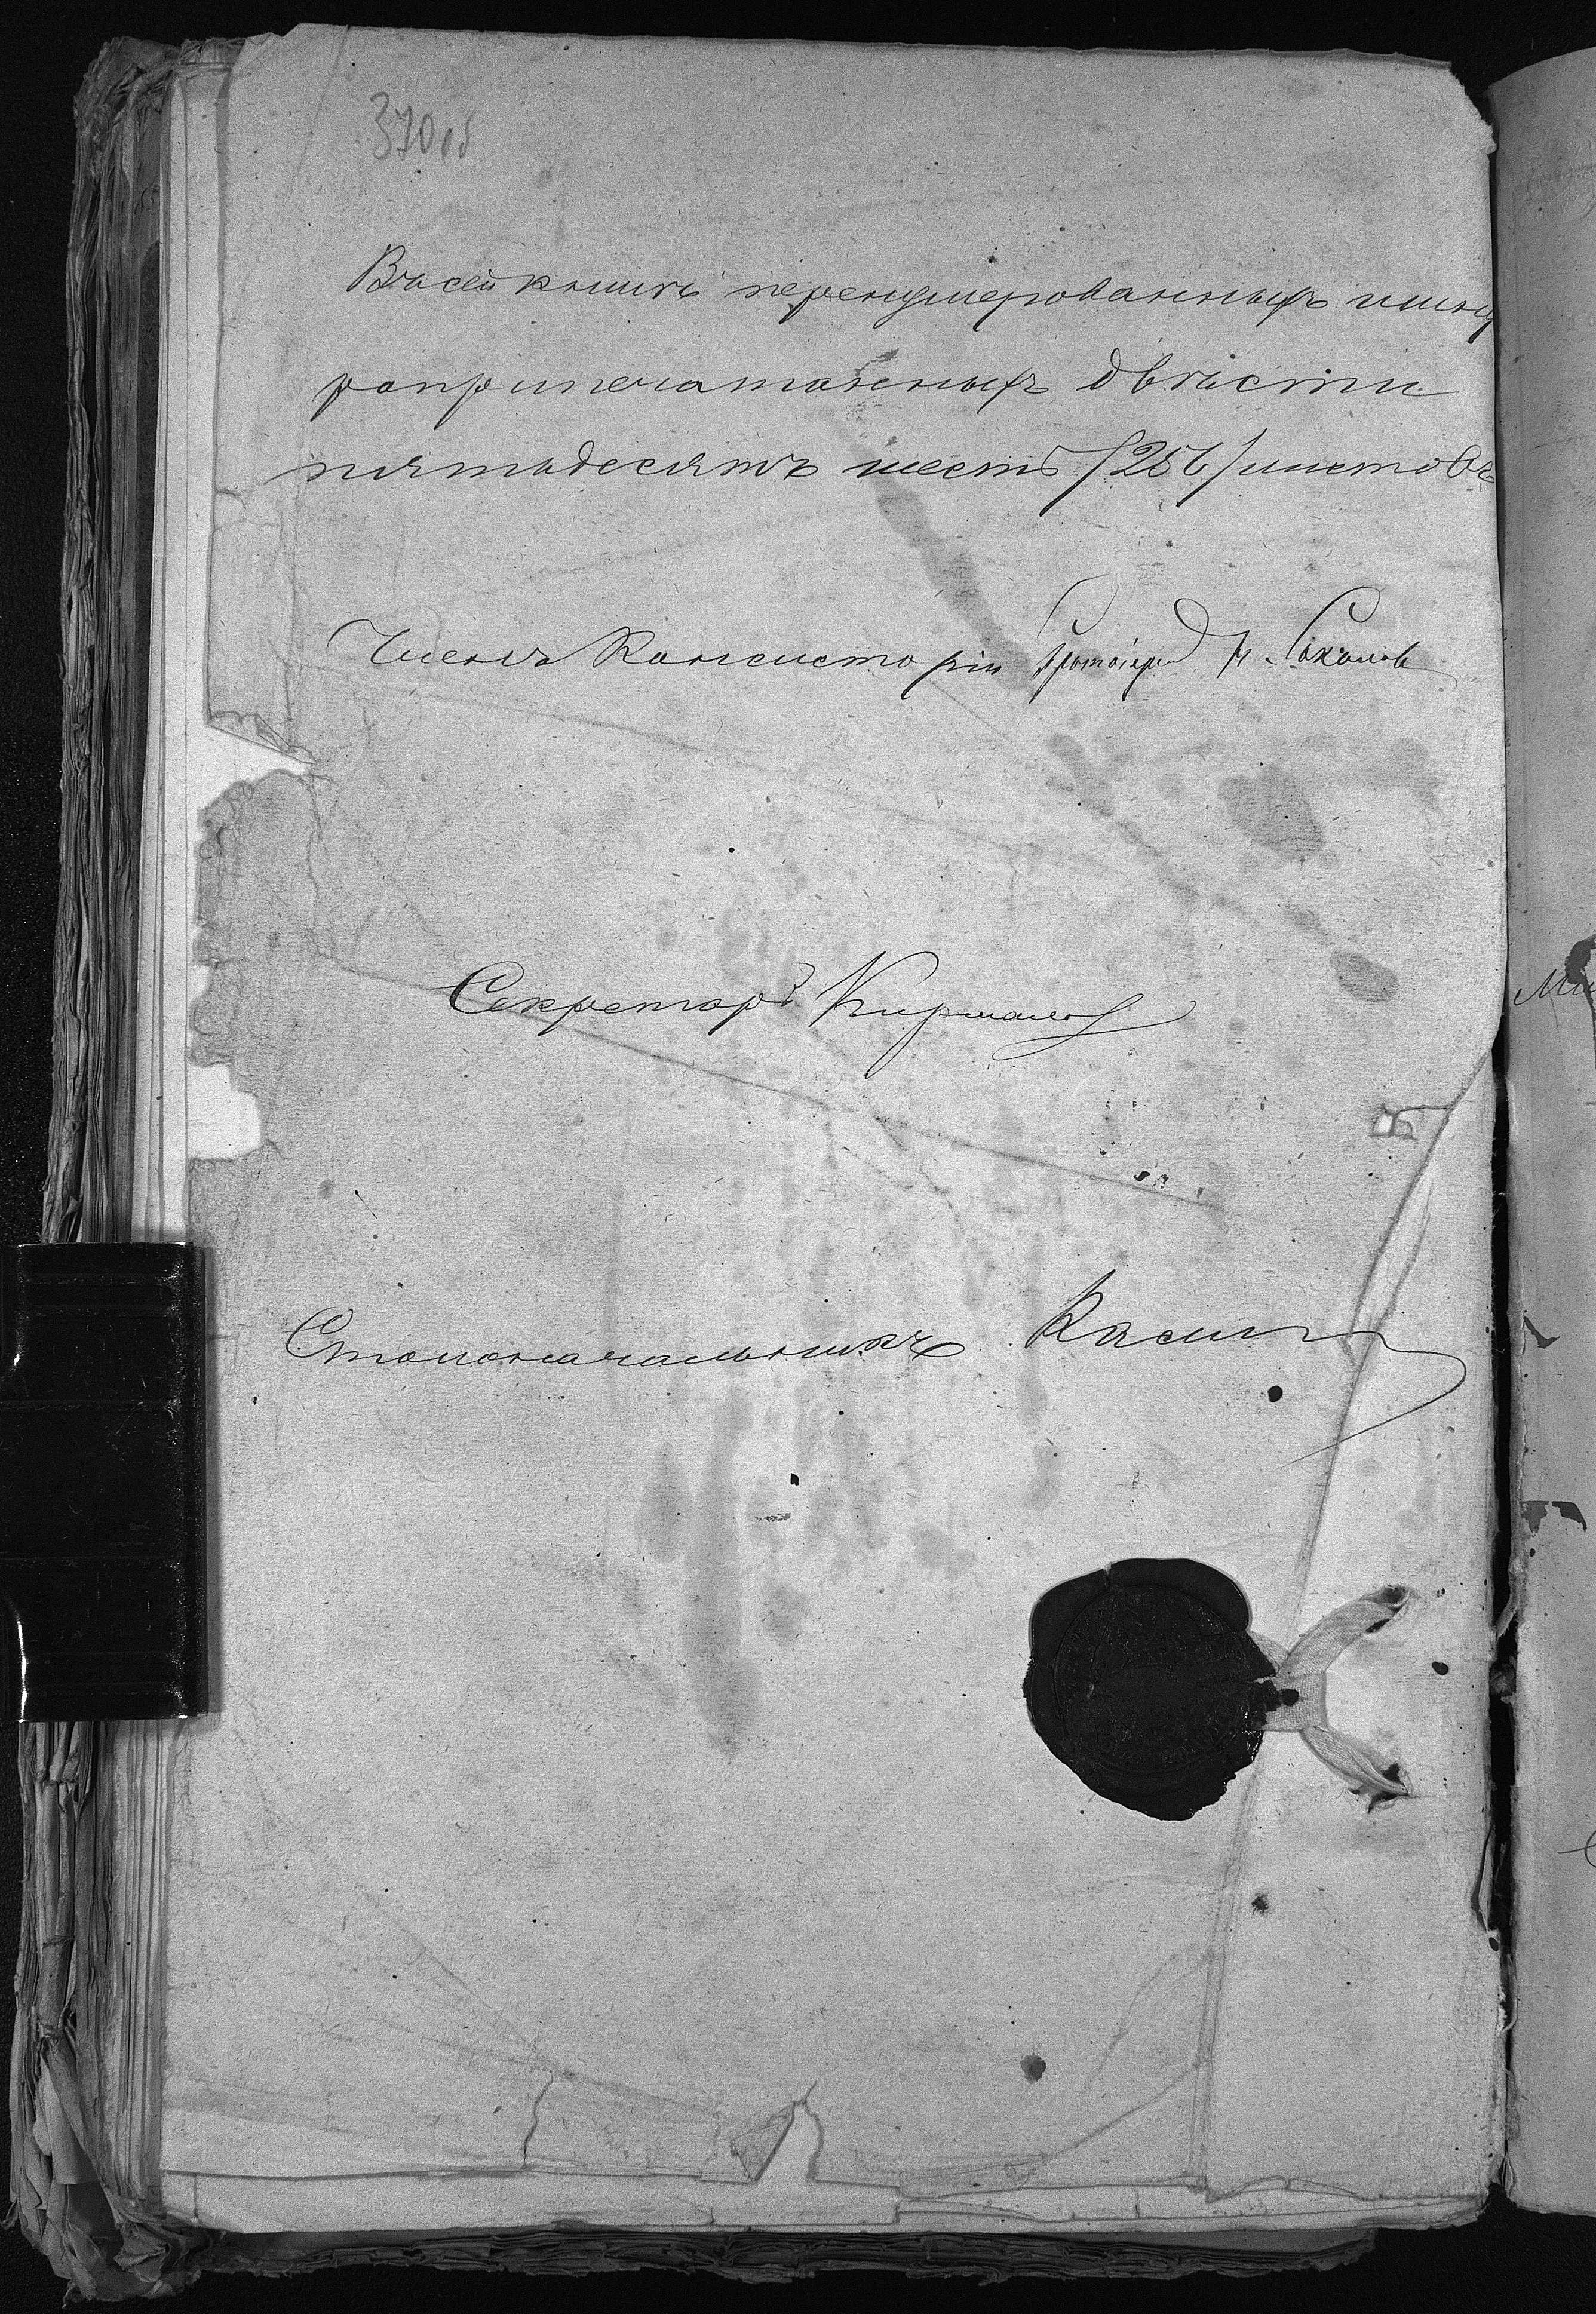 370 об
Въ сей книгѣ перенумерованныхъ и шну
роприпечатанныхъ двѣсти
пятьдесятъ шесть /256/ листовъ
Членъ Консисторіи Протоіерей Н. Соколовъ
Секретарь
Столоначальникъ